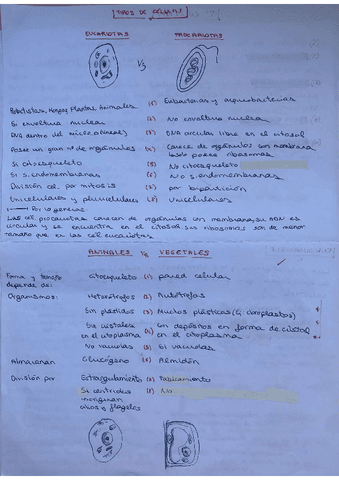 TIPOS DE CÉLULAS
EUCARIOTAS
PROCARIOTAS
VS
Protistas, Hongos, Plantas, Animales (1) Eubacterias y arqueobacterias
Si envoltura nuclear (2) No envoltura nuclear
DNA dentro del núcleo (lineal) (3) DNA circular libre en el citosol
Posee un gran nº de orgánulos (4) Carece de orgánulos con membrana
solo posee ribosomas
Si citoesqueleto (5) No citoesqueleto
Si s. endomembranas (6) No s. endomembranas
División cel. por mitosis (7) por bipartición
Unicelulares y pluricelulares (8) unicelulares
Por lo general
Las cel. procariotas carecen de orgánulos con membrana, su ADN es
circular y se encuentra en el citosol. Sus ribosomas son de menor
tamaño que en las cel. eucariotas
ANIMALES VS VEGETALES
Forma y tamaño citoesqueleto (1) pared celular
depende de:
Organismos: Heterótrofos (2) Autótrofos
Sin plástidos (3) Muchos plásticos (Ej cloroplastos)
Sin cristales (4) Con depósitos en forma de cristal
en el citoplasma en el citoplasma
No vacuolas (5) Si vacuolas
Almacenan Glucógeno (6) Almidón
División por Estrangulamiento (7) Tabicamiento
Si centriolos (8) No
cilios y flagelos